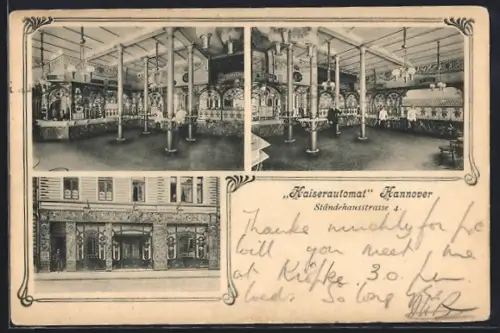 „Kaiserautomat" Hannover
Ständehausstrasse 4.
Thanks muchly for p.c.
will you meet me
at Kröpke 3.0. pm
weds. So long